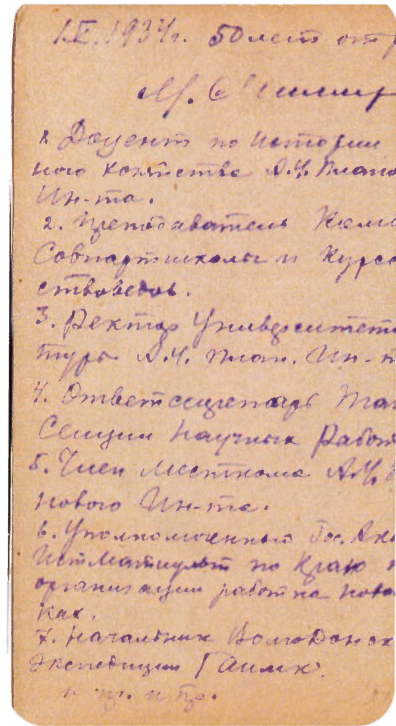 1.X.1934г. 50 лет от р
М. Миллер
1. Доцент по истории
ного хозяйства А.Ч. Плано
Ин-та.
2. Преподаватель Комм
Совпартшколы и Курсо
ствоведов.
3. Ректор Университет
тура А.Ч. План. Ин-т
4. Ответсекретарь
Секции Научных Работ
5. Член Месткома А.Ч.
нового Ин-та.
6. Уполномоченный Гос. Ака
Истматкульт по Краю
организации работ на ново
ках.
7. Начальник Волгодонск
Экспедиции ГАИМК.
и пр. и пр.